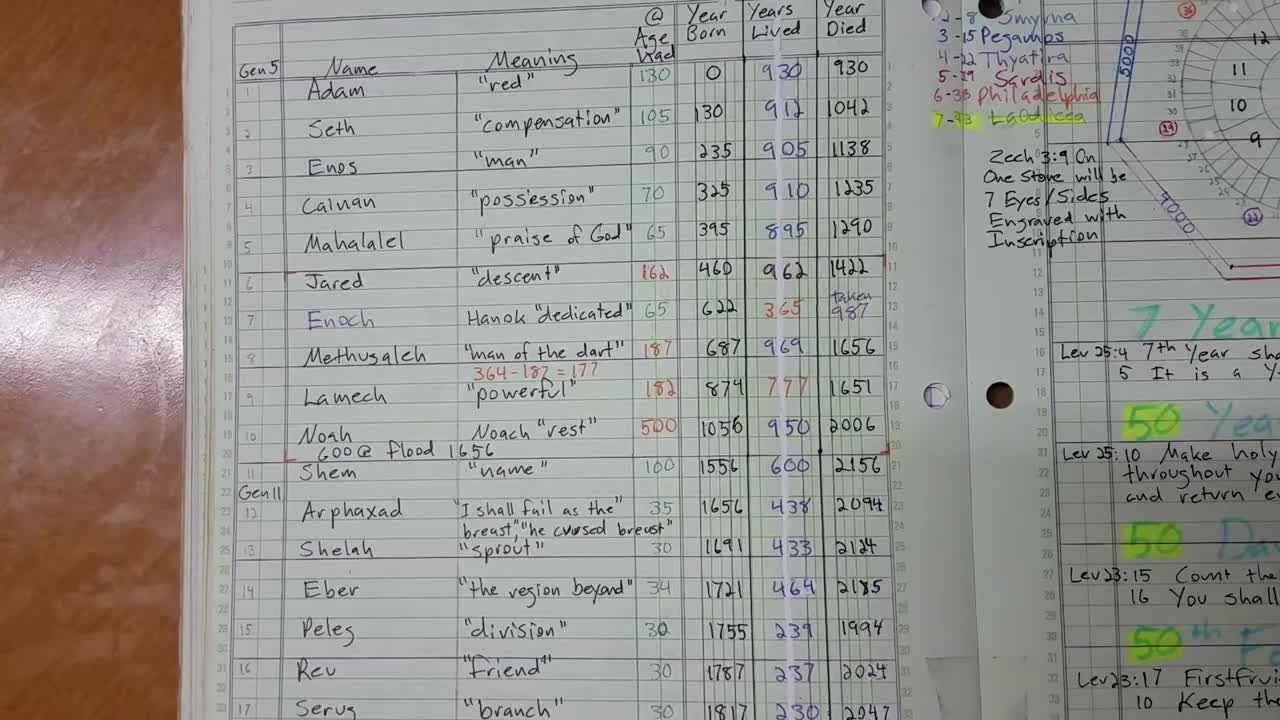 Gen 5 Name Meaning @ Age Had Year Born Years Lived Year Died
1 Adam "red" 130 0 930 930
2 Seth "compensation" 105 130 912 1042
3 Enos "man" 90 235 905 1138
4 Cainan "possession" 70 325 910 1235
5 Mahalalel "praise of God" 65 395 895 1290
6 Jared "descent" 162 460 962 1422
7 Enoch Hanok "dedicated" 65 622 365 taken 987
8 Methusaleh "man of the dart" 187 687 969 1656
364-187=177
9 Lamech "powerful" 182 874 777 1651
10 Noah Noach "rest" 500 1056 950 2006
600 @ flood 1656
11 Shem "name" 100 1556 600 2156
Gen 11
12 Arphaxad "I shall fail as the 35 1656 438 2094
breast," "he cursed breast"
13 Shelah "sprout" 30 1691 433 2124
14 Eber "the region beyond" 34 1721 464 2185
15 Peleg "division" 30 1755 239 1994
16 Reu "Friend" 30 1787 237 2024
17 Serug "branch" 30 1817 230 2047
2-8 Smyrna
3-15 Pegamos
4-22 Thyatira
5-29 Sardis
6-38 Philadelphia
Laodicea
Zech 3:9 On
One Stone will be
7 Eyes/Sides
Engraved with
Inscription
5000
12
11
10
9
7 Year
Lev 25:4 7th Year
5 It is a
50 Yea
Lev 25:10 Make holy
throughout
and return
50
Lev 23:15 Count the
16 You shall
50th
Lev 23:17 Firstfrui
10 Keep the